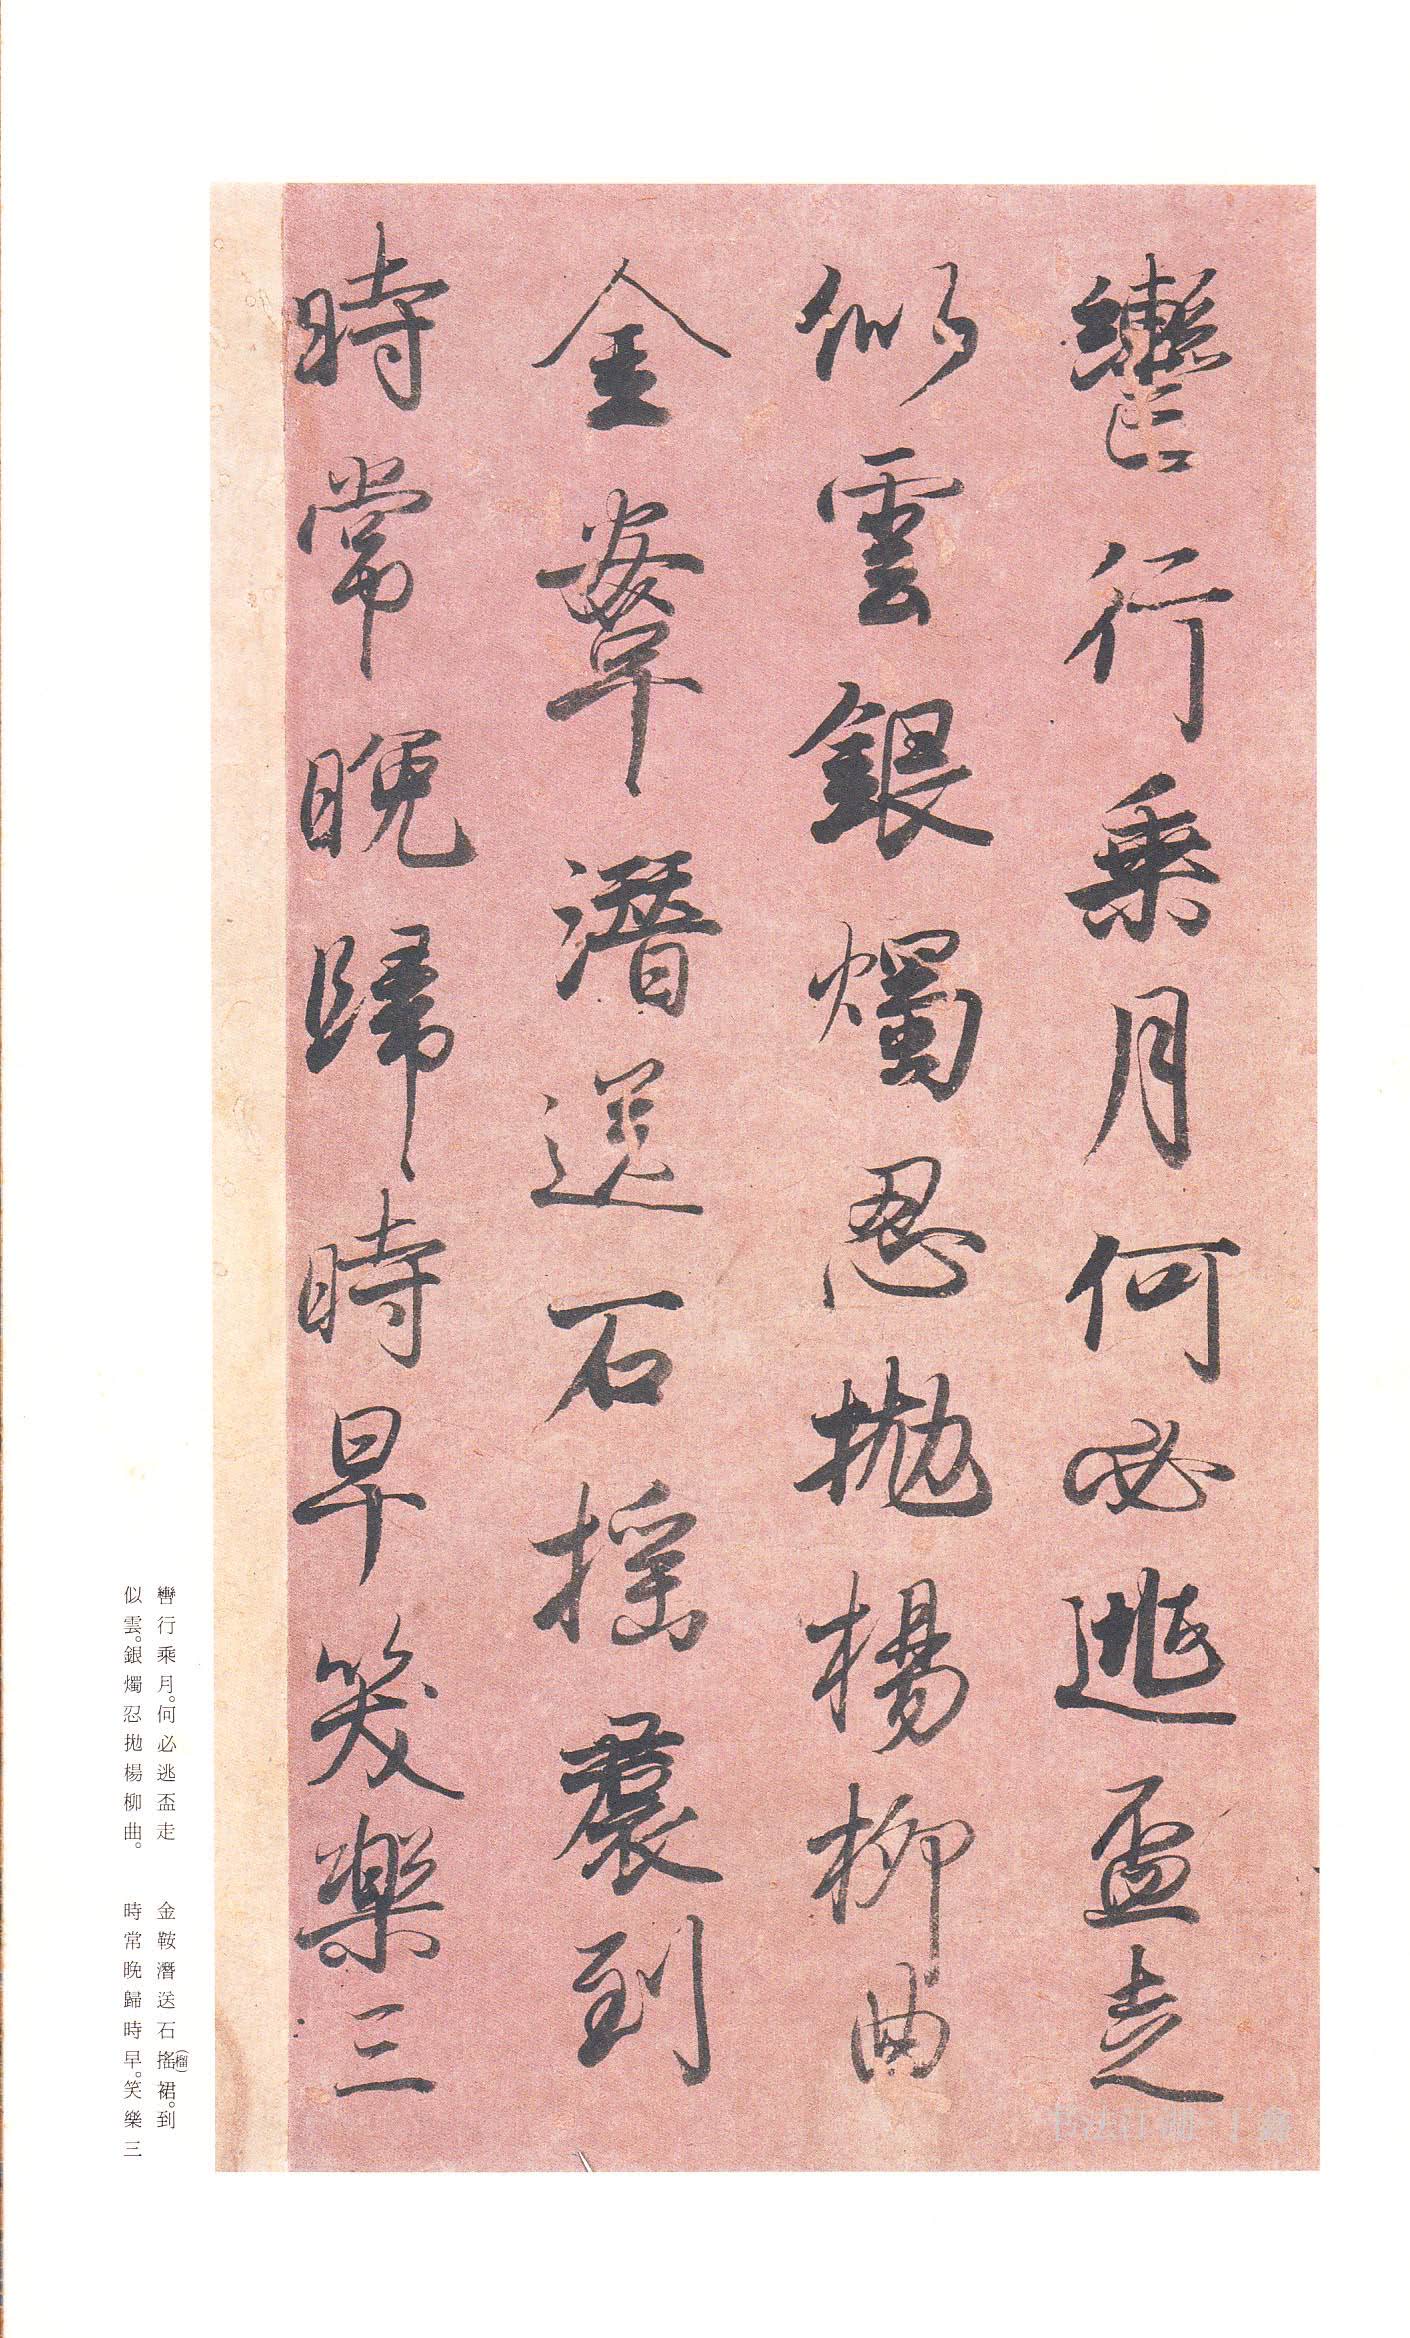 轡行乘月何必逃盃走
似雲銀燭忍拋楊柳曲
金鞍潛送石搖裙到
時常晚歸時早笑樂三
轡行乘月。何必逃盃走
似雲。銀燭忍拋楊柳曲。
金鞍潛送石搖(榴)裙。到
時常晚歸時早。笑樂三